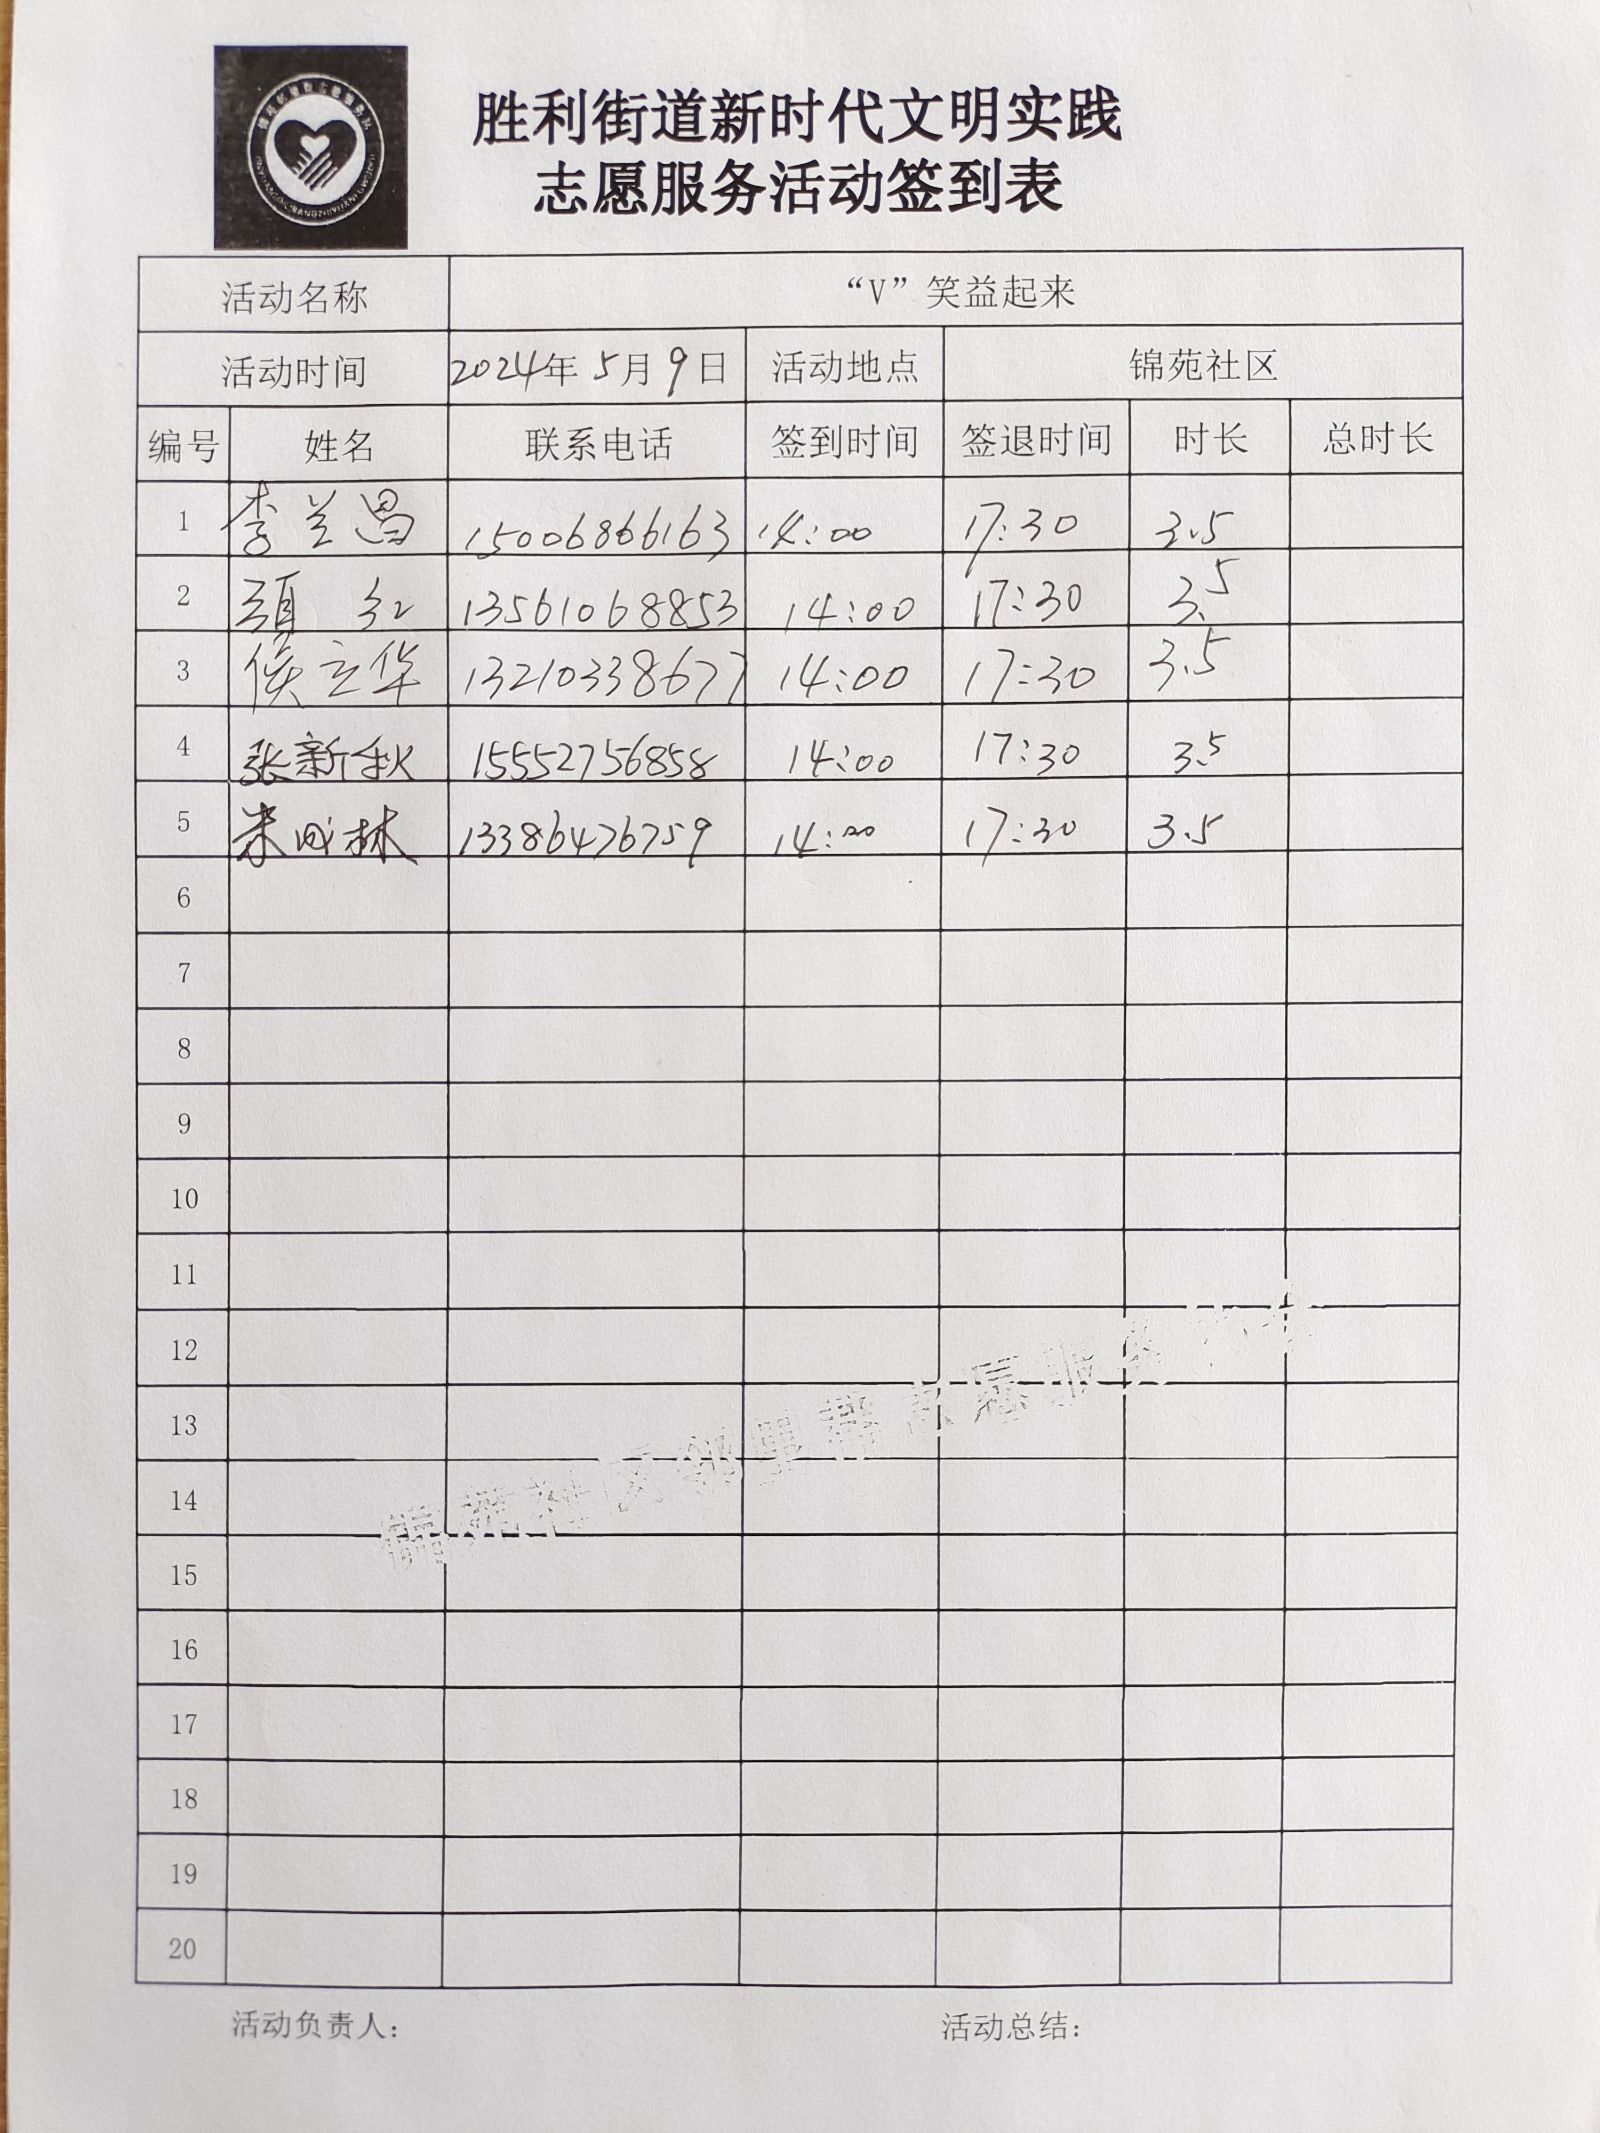 胜利街道新时代文明实践
志愿服务活动签到表
活动名称 “V”笑益起来
活动时间 2024年5月9日 活动地点 锦苑社区
编号 姓名 联系电话 签到时间 签退时间 时长 总时长
1 李兰昌 15006866163 14:00 17:30 3.5
2 红 13561068853 14:00 17:30 3.5
3 侯立华 13210338677 14:00 17:30 3.5
4 张新秋 15552756858 14:00 17:30 3.5
5 米成林 13386476759 14:00 17:30 3.5
6
7
8
9
10
11
12
13
14
15
16
17
18
19
20
锦苑社区邻里帮志愿服务
活动负责人: 活动总结: